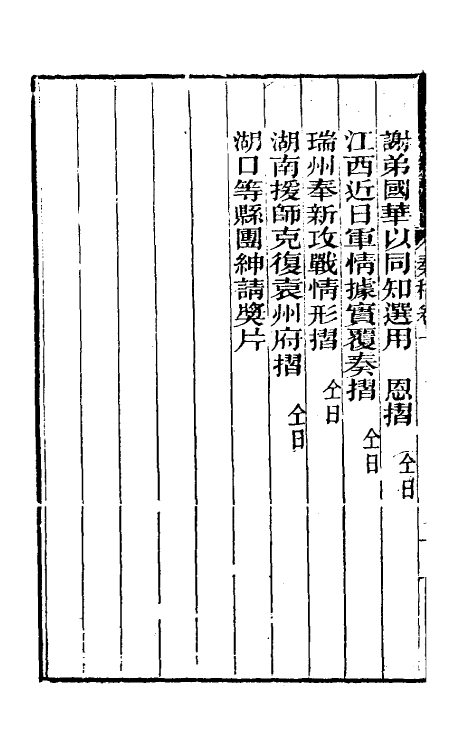 謝弟國華以同知選用　恩摺　仝日
江西近日軍情據實覆奏摺　仝日
瑞州奉新攻戰情形摺　仝日
湖南援師克復袁州府摺　仝日
湖口等縣團紳請獎片